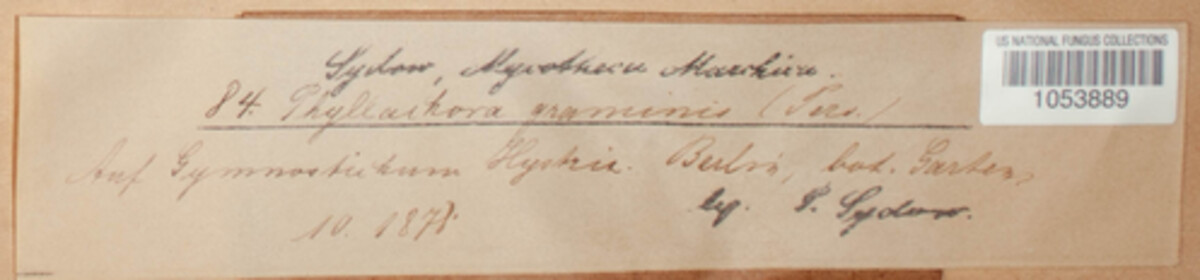 Sydow, Mycotheca Marchica.
84. Phyllachora graminis (Pers.)
Auf Gymnostichum Hystrix. Berlin, bot. Garten,
10. 1878. leg. P. Sydow.
US NATIONAL FUNGUS COLLECTIONS
1053889